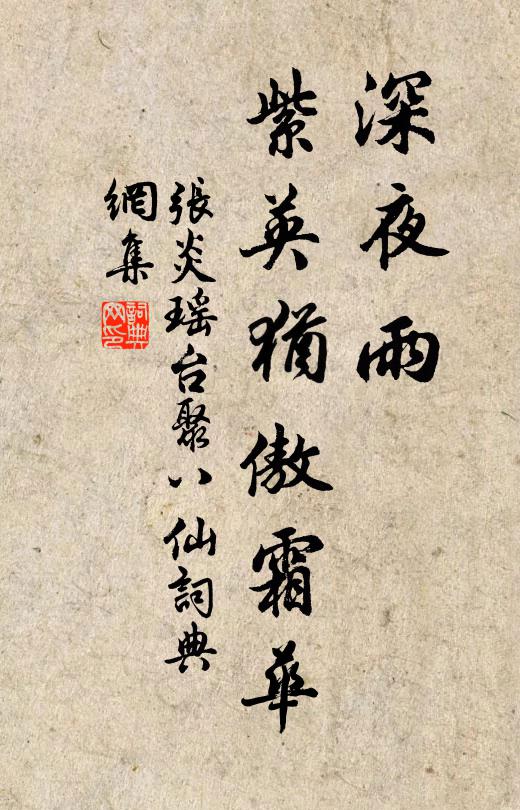 深夜雨
紫英猶傲霜華
張炎瑶台聚八仙詞典
網集
詞典
网印